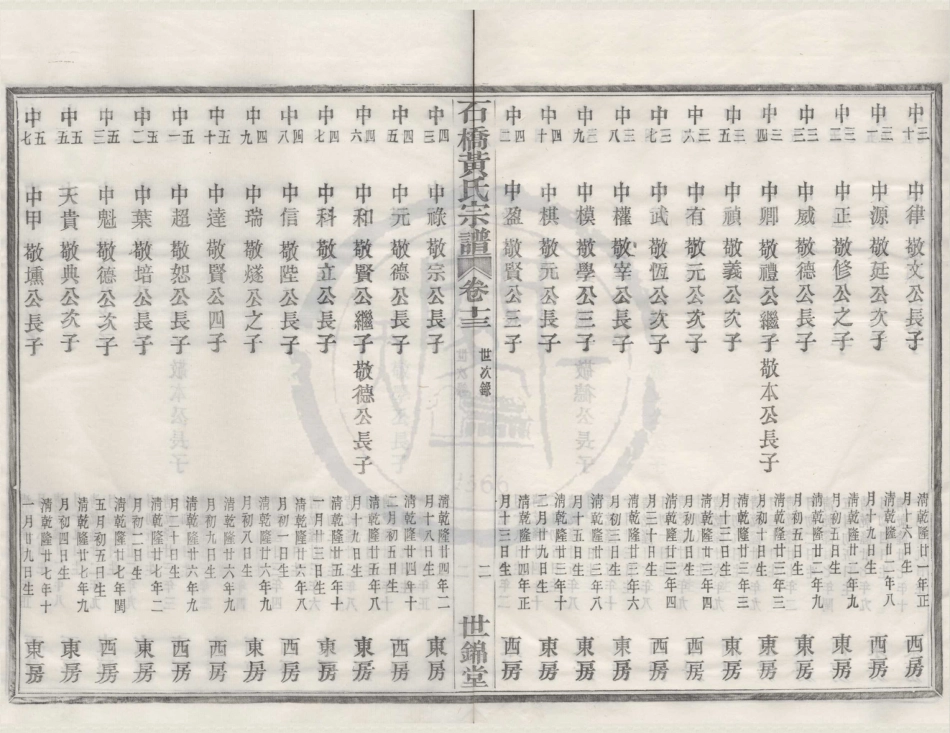 中三十 中律 敬文公次子 清乾隆廿一年正月十六日生 西房
中三一 中源 敬廷公次子 清乾隆廿二年八月十九日生 西房
中三二 中正 敬修公之子 清乾隆廿二年九月初五日生 東房
中三三 中威 敬德公長子 清乾隆廿二年九月初五日生 東房
中三四 中卿 敬禮公繼子敬本公長子 清乾隆廿三年三月初十日生 東房
中三五 中禎 敬義公長子 清乾隆廿三年三月十三日生 東房
中三六 中有 敬元公次子 清乾隆廿三年四月初二日生 東房
中三七 中武 敬恆公次子 清乾隆廿三年四月三十日生 西房
中三八 中權 敬宰公長子 清乾隆廿三年六月初三日生 東房
中三九 中模 敬學公三子 清乾隆廿三年八月十五日生 東房
中四十 中棋 敬元公長子 清乾隆廿三年十二月廿九日生 東房
中四二 中盈 敬賢公三子 清乾隆廿四年正月十三日生 西房
石橋黃氏宗譜 卷十三 世次錄 二 世錦堂
中四三 中祿 敬宗公長子 清乾隆廿四年二月十八日生 東房
中四五 中元 敬德公次子 清乾隆廿四年十二月初五日生 西房
中四六 中和 敬賢公繼子敬德公長子 清乾隆廿五年八月十九日生 東房
中四七 中科 敬立公長子 清乾隆廿五年十一月廿三日生 東房
中四八 中信 敬陞公長子 清乾隆廿六年八月初一日生 西房
中四九 中瑞 敬燧公之子 清乾隆廿六年九月初八日生 東房
中五十 中達 敬賢公四子 清乾隆廿六年九月初十日生 西房
中五一 中超 敬恕公長子 清乾隆廿六年九月二十日生 西房
中五二 中葉 敬培公長子 清乾隆廿七年二月初二日生 東房
中五三 中魁 敬德公次子 清乾隆廿七年閏五月初五日生 西房
中五五 天貴 敬典公次子 清乾隆廿七年九月初四日生 東房
中五七 中甲 敬壎公長子 清乾隆廿七年十一月廿九日生 東房